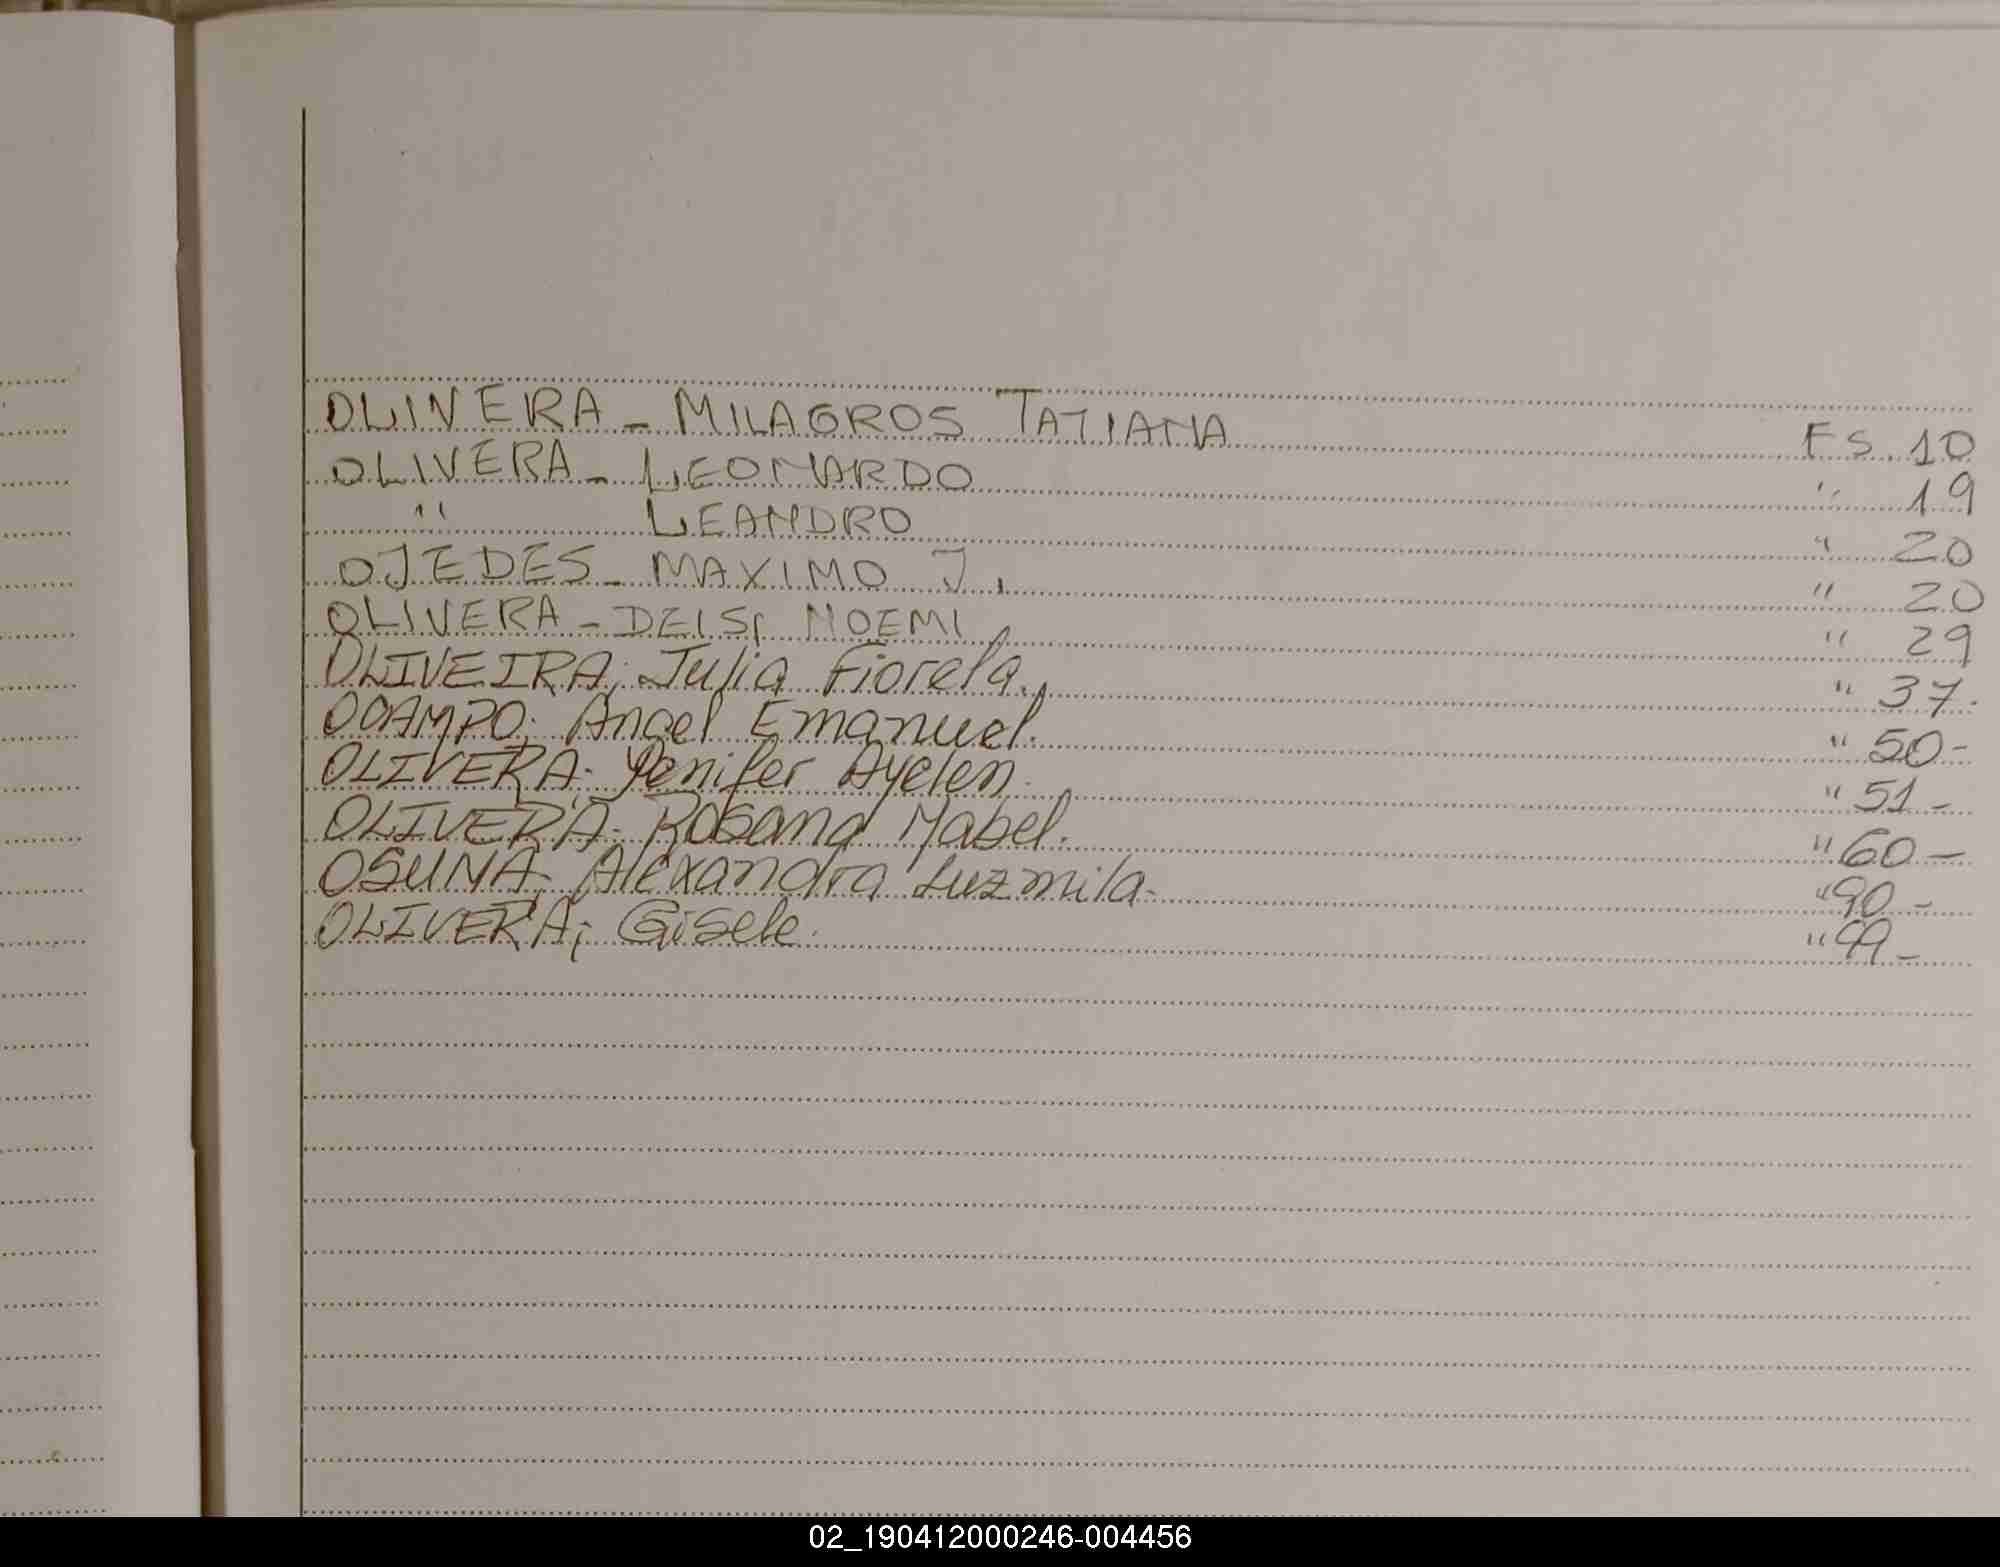 OLIVERA - MILAGROS TATIANA FS. 10
OLIVERA - LEONARDO " 19
" LEANDRO " 20
OJEDES - MAXIMO J. " 20
OLIVERA - DEISI NOEMI " 29
OLIVEIRA; Julia Fiorela. " 37-
OCAMPO; Angel Emanuel. " 50-
OLIVERA; Yenifer Ayelen. " 51-
OLIVERA; Rosana Mabel. " 60-
OSUNA; Alexandra Luzmila- " 90-
OLIVERA; Gisele. " 99-
02_190412000246-004456